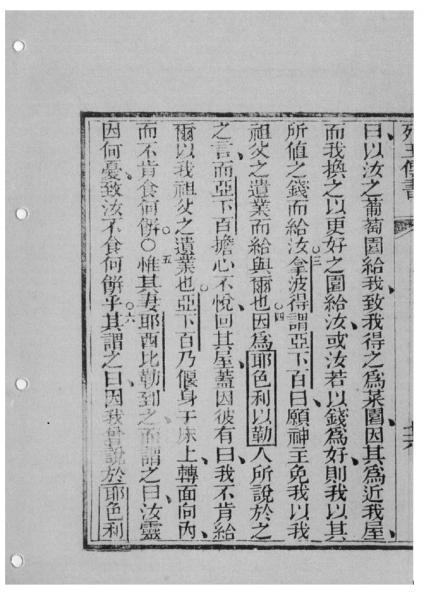 列王傳書
曰以汝之葡萄園給我致我得之為菜園因其為近我屋
而我換之以更好之園給汝或汝若以錢為好則我以其
所值之錢而給汝○三拿波得謂亞下百曰願神主免我以我
祖父之遺業而給與爾也○四因為耶色利以勒人所說於之
之言而亞下百擔心不悅回其屋蓋因彼有曰我不肯給
爾以我祖父之遺業也○亞下百乃偃身于床上轉面向內
而不肯食何餅○五惟其妻耶酉比勒到之而謂之曰汝靈
因何憂致汝不食何餅乎○六其謂之曰因我曾說於耶色利